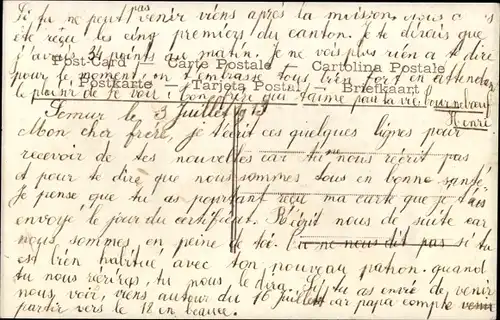 Si tu ne peut pas venir viens après la moisson, nous
été reçu les cinq premiers du canton. Je te dirais que
j'avais 34 points au matin. Je ne vois plus rien a te dire
pour le moment, on t'embrasse tous bien fort en attendant
le plaisir de te voir. Ton frère qui t'aime pour la vie.
Henri
Post-Card Carte Postale Cartolina Postale
Postkarte Tarjeta Postal Briefkaart
Semur le 3 Juillet
Mon cher frère, je t'écrit ces quelques lignes pour
recevoir de tes nouvelles car tu nous récrit pas
et pour te dire que nous sommes tous en bonne santé.
Je pense que tu as pourtant reçu ma carte que je t'ais
envoyé le jour du certificat. Récrit nous de suite car
nous sommes en peine de toi. tu ne nous dit pas si tu
est bien habitué avec ton nouveau patron. quand
tu nous récriras, tu nous le dira. Si tu as envie de venir
nous voir, viens autour du 16 Juillet car papa compte venir
partir vers le 18 en beauce.